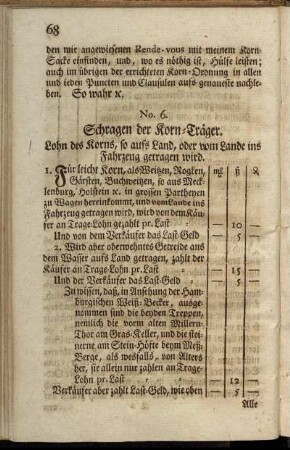 68
den mir angewiesenen Rende-vous mit meinem Korn-
Sacke einfinden, und, wo es nöthig ist, Hülfe leisten;
auch im übrigen der errichteten Korn-Ordnung in allen
und jeden Puncten und Clausulen aufs genaueste nachle-
ben. So wahr ꝛc.
No. 6.
Schragen der Korn-Träger.
Lohn des Korns, so aufs Land, oder vom Lande ins
Fahrzeug getragen wird.
1. Für leicht Korn, als Weitzen, Rogken, mꝶ ß ₰
Gärsten, Buchweitzen, so aus Meck-
lenburg, Holstein ꝛc. in grossen Partheyen
zu Wagen hereinkommt, und vom Lande ins
Fahrzeug getragen wird, wird von dem Käu-
fer an Trage-Lohn gezahlt pr. Last — 10 —
Und von dem Verkäufer das Last-Geld — 5 —
2. Wird aber oberwehntes Getreide aus
dem Wasser aufs Land getragen, zahlt der
Käufer an Trage-Lohn pr. Last — 15 —
Und der Verkäufer das Last-Geld — 5 —
Zu wissen, daß, in Ansehung der Ham-
burgischen Weiß-Becker, ausge-
nommen sind die beyden Treppen,
nemlich die vorm alten Millern-
Thor am Gras-Keller, und die stei-
nerne am Stein-Höfte beym Meß-
Berge, als wesfalls, von Alters
her, sie allein nur zahlen an Trage-
Lohn pr. Last — 12 —
Verkäufer aber zahlt Last-Geld, wie oben — 5 —
Alle